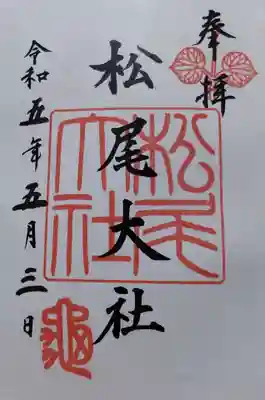 奉拝
松尾大社
松尾大社
令和五年五月三日
亀